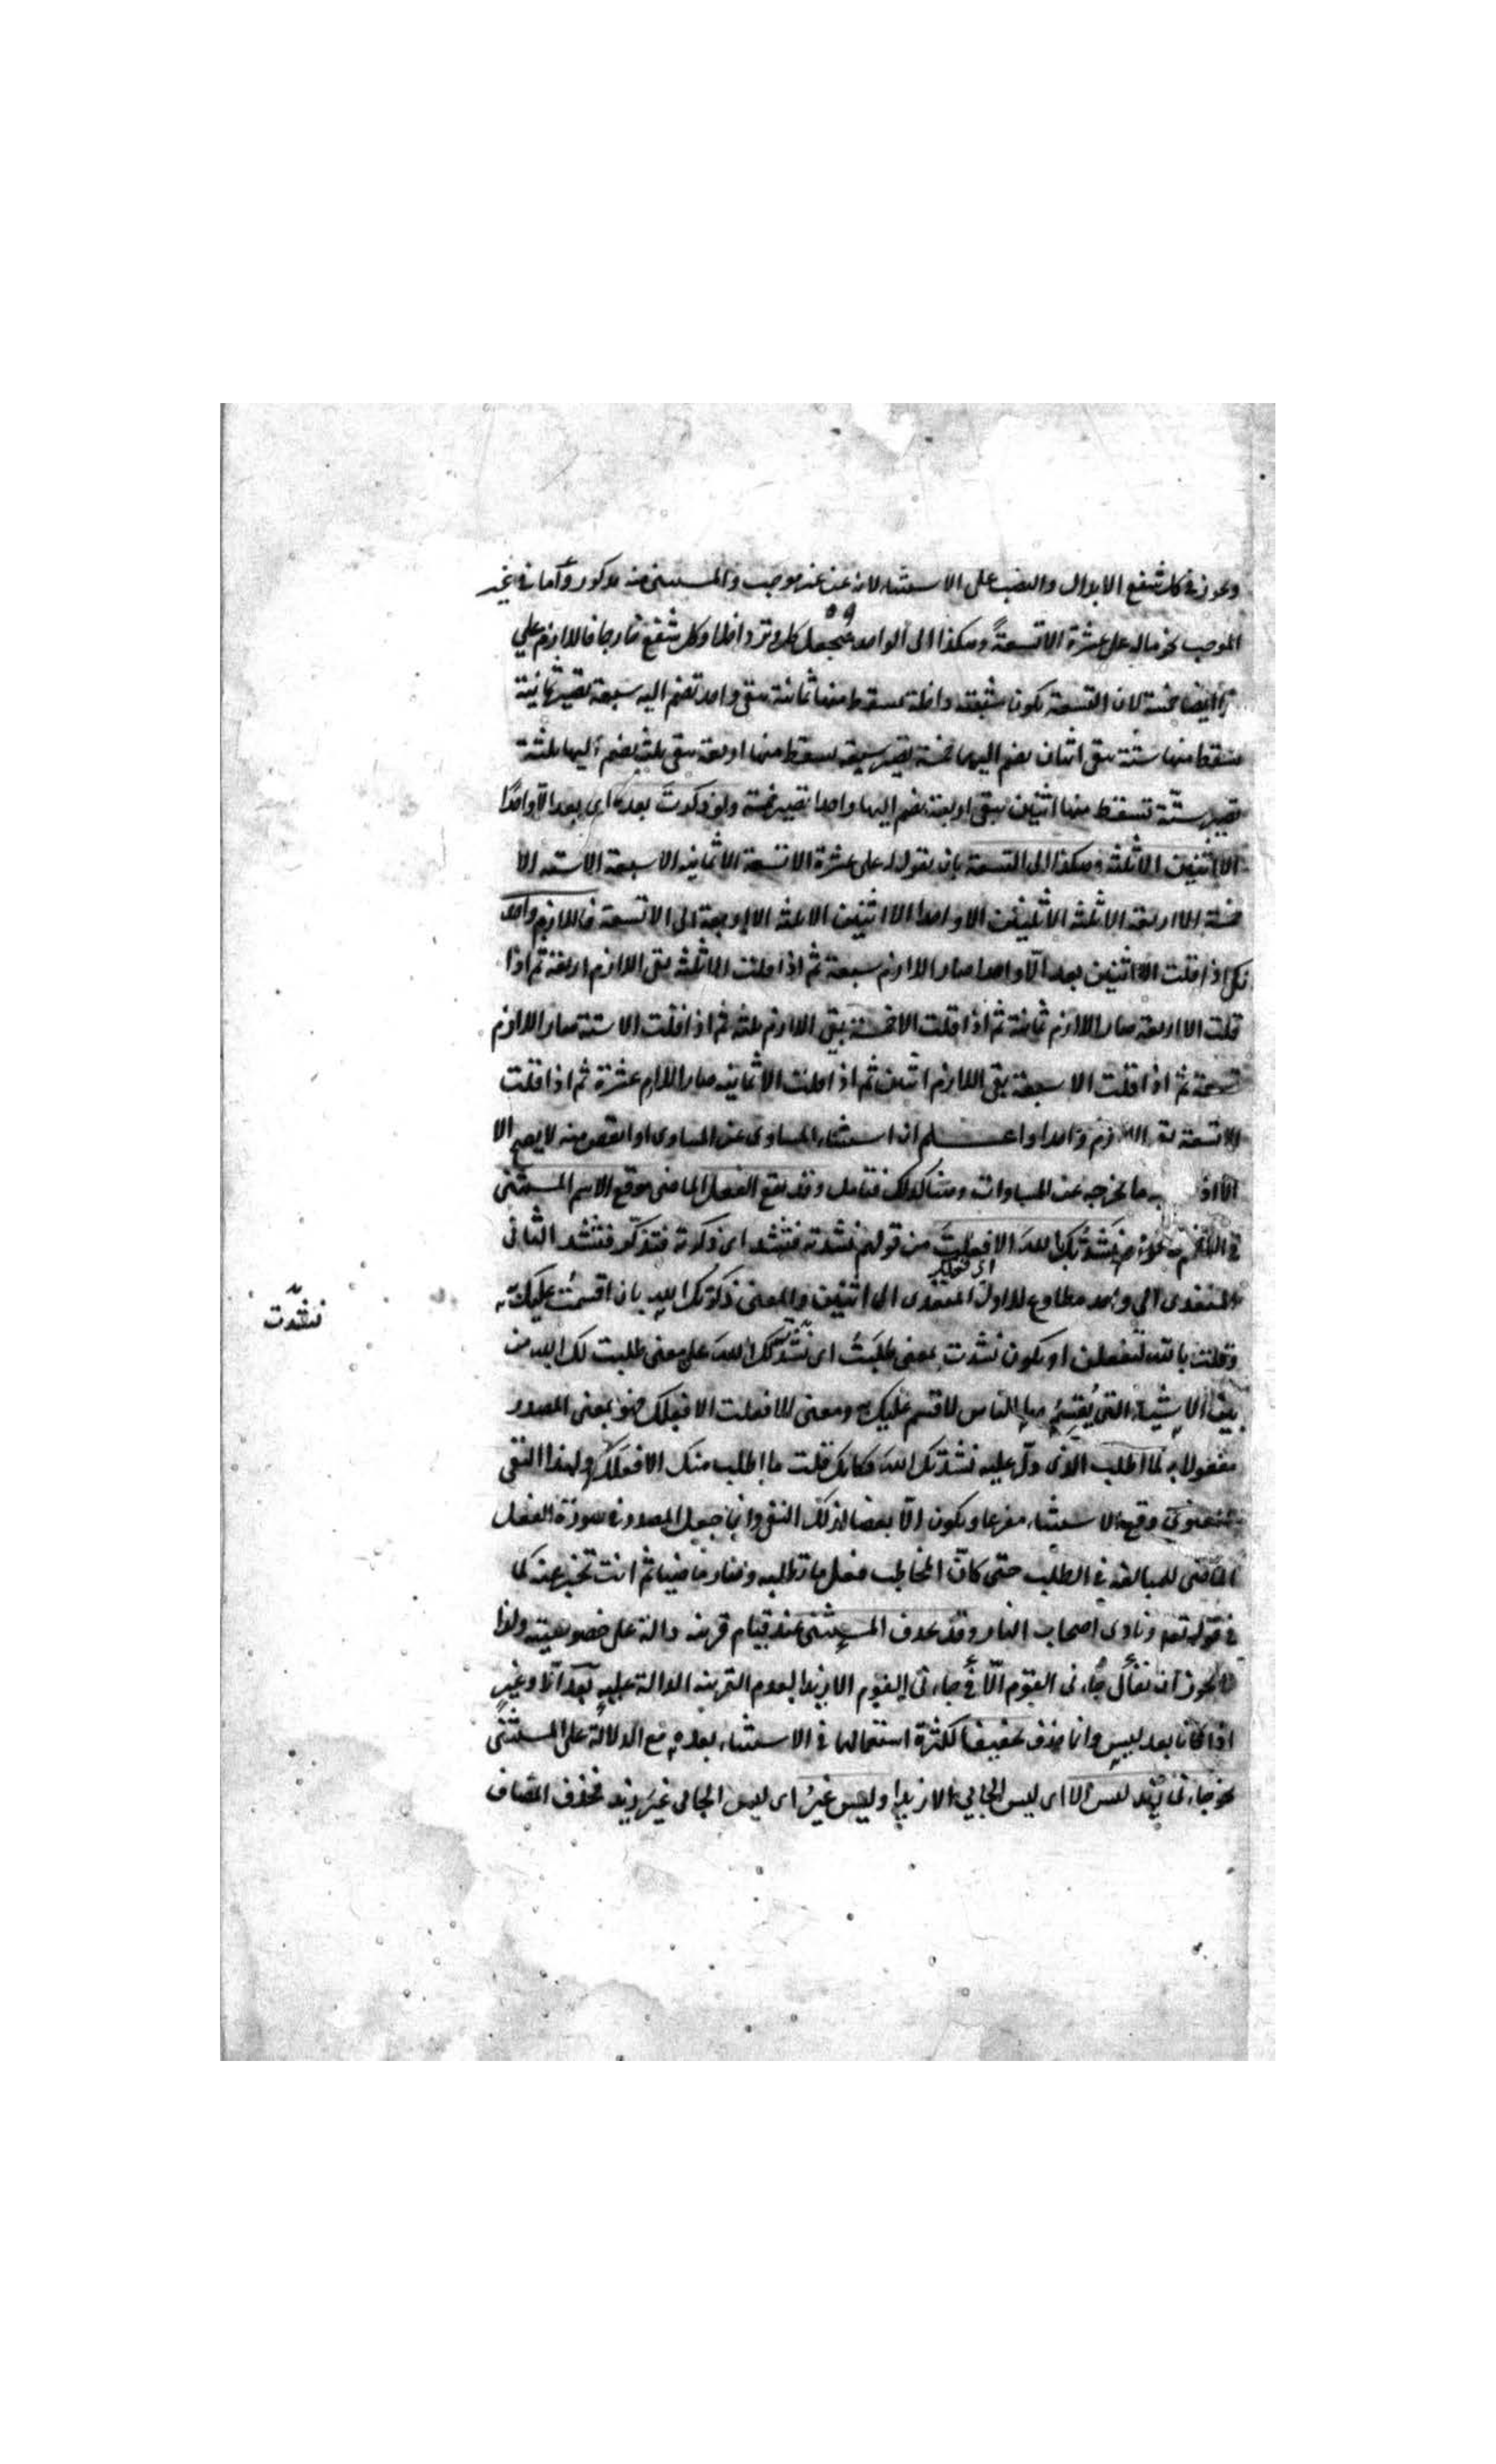 ويجوز في كل شفع الابدال والنصب على الاستثناء لانه عن غير موجب والمستثنى منه مذكور وأما في غير
الموجب نحو ماله على عشرة الا تسعةً وهكذا الى الواحد فيجعل كل وتر داخلا وكل شفع خارجا فاللازم على
ايضا خمسة لان التسعة يكون مثبتة داخلة يسقط منها ثمانية يبقى واحد تضم اليه سبعة تصير ثمانية
يسقط منها ستة يبقى اثنان يضم اليهما خمسة يصير سبعة يسقط منها اربعة يبقى ثلثة يضم اليها ثلثة
تصير ستّة تسقط منها اثنين يبقى اربعة تضم اليها واحدا تصير خمسة ولو ذكرت بعده اى بعد الا واحدًا
الا اثنين الا ثلثة وهكذا الى التسعة بان يقول له على عشرة الا تسعة الا ثمانية الا سبعة الا ستة الا
خمسة الا اربعة الا ثلثة الا اثنين الا واحدا الا اثنين الا ثلثة الا اربعة الى الا تسعة فاللازم واحد
لكن اذا قلت الا اثنين بعد الا واحدا صار اللازم سبعة ثم اذا قلت الا ثلثة بقى اللازم اربعة ثم اذا
قلت الا اربعة صار اللازم ثمانية ثم اذا قلت الا خمسة بقى اللازم ثلثة ثم اذا قلت الا ستة صار اللازم
تسعة ثم اذا قلت الا سبعة بقى اللازم اثنين ثم اذا قلت الا ثمانية صار اللازم عشرة ثم اذا قلت
الا تسعة بقى اللازم واحدا واعلم ان استثناء المساوى عن المساوى او انقص منه لا يصح الا
الا اذا ما يخرجه عن المساوات فتامل وقد يقع الفعل الماضى موقع الاسم المستثنى
في نحو نَشَدْتُكَ باللهَ الا فعلتَ من قولهم نشدته فنشد اى ذكرته فتذكّر فنشد الثانى
اى فعلك
المتعدى الى واحد مطاوع للاول المتعدى الى اثنين والمعنى ذكرتك الله بان اقسمت عليك به
نشدت
وقلت بالله لتفعلن او يكون نشدت بمعنى طلَبتُ اى نشدت لك اللهَ على معنى طلبت لك الله من
بين الاشياء التى يُقسِمُ بها الناس لاقسم عليك به ومعنى الا فعلت الا فعلك فهو بمعنى المصدر
مفعولا به لما اطلب الذى دلّ عليه نشدتك اللهَ فكانك قلت ما اطلب منك الا فعلك ولهذا النفى
المعنوى وقع الاستثناء مفرغا ويكون الا بعضا لذلك النفى وانما جعل المصدر فى صورة الفعل
الماضى للمبالغة فى الطلب حتى كانّ المخاطب فعل ما تطلبه وصار ماضيا ثم انت تخبر عنه كما
فى قوله تع ونادى اصحاب النار وقد يحذف المستثنى عند قيام قرينة دالة على خصوصيته ولذا
لا يجوز أن يقال جاءنى القوم الّا فى جاءنى القوم الا زيدا لعدم القرينة الدالة عليه بعد الّا وغير
اذا كانا بعد ليس وانما حذف تخفيفا لكثرة استعمالها فى الاستثناء بعده مع الدلالة على المستثنى
نحو جاءنى زيد ليس الا اى ليس الجائى الا زيدا وليس غيرُ اى ليس الجائى غيرَ زيد فحذف المضاف